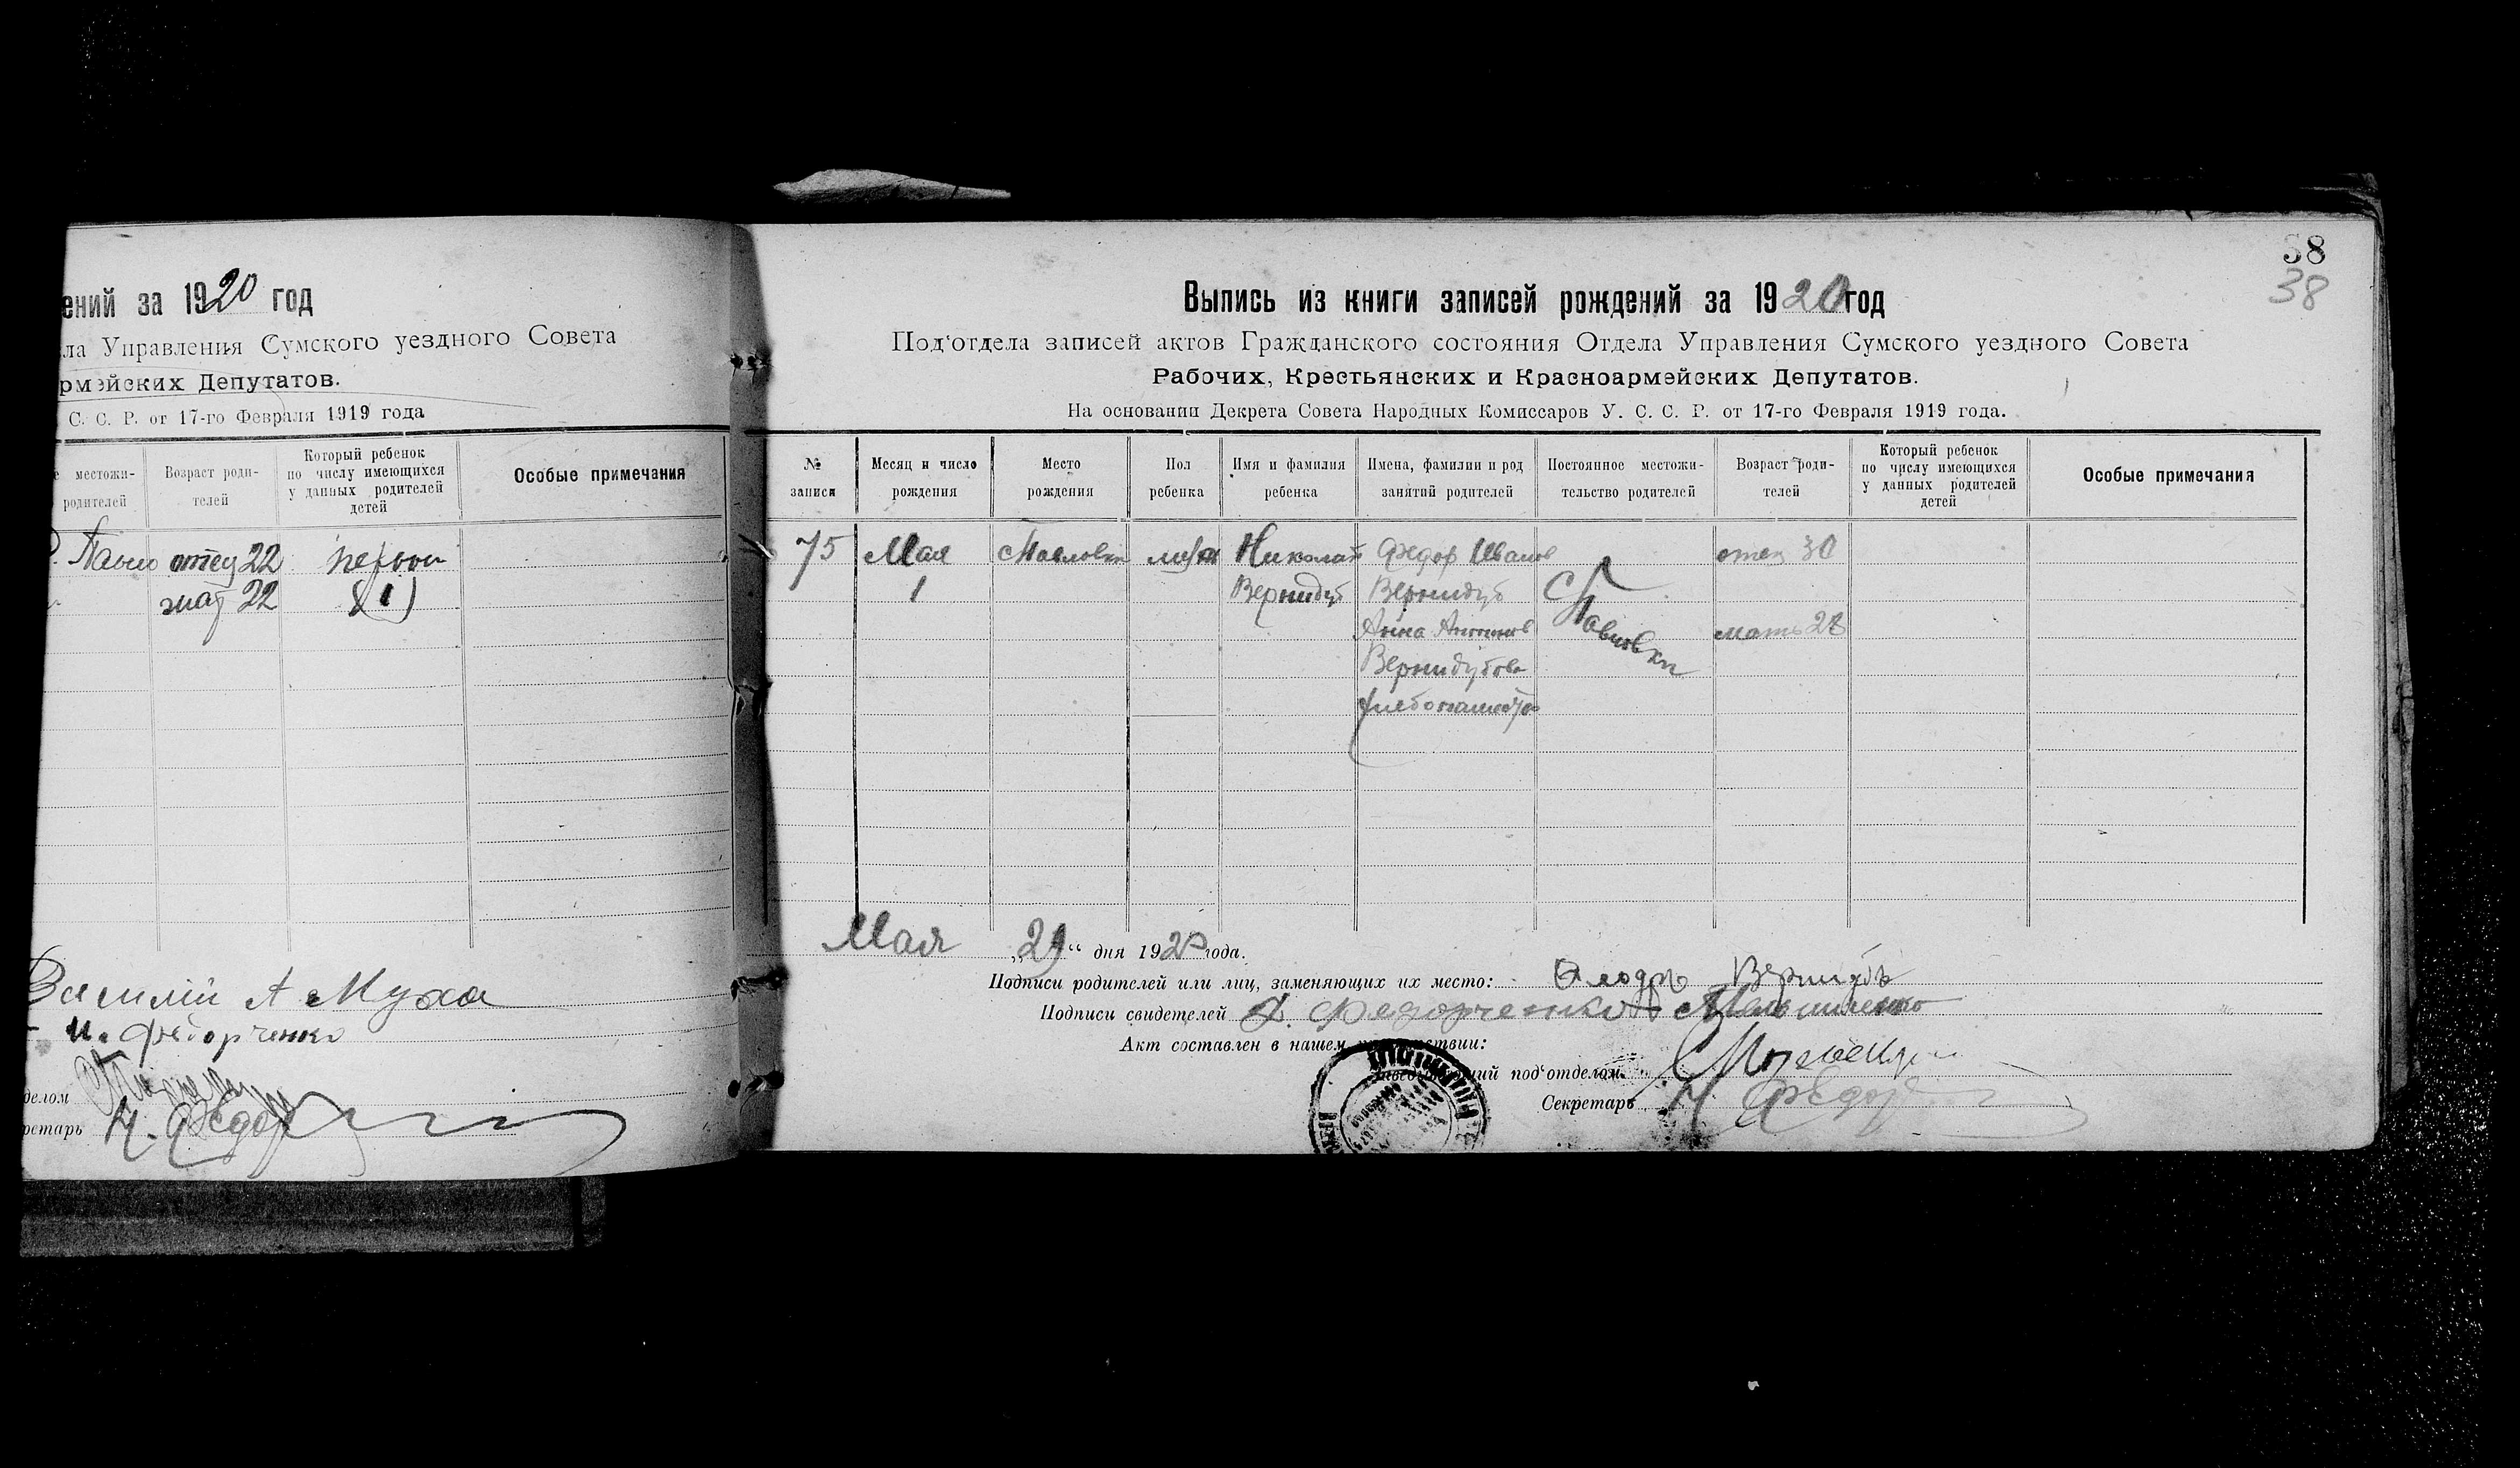 ений за 1920 год
ла Управления Сумского уездного Совета
рмейских Депутатов.
С. С. Р. от 17-го Февраля 1919 года
местожи-
родителей
Возраст роди-
телей
Который ребенок
по числу имеющихся
у данных родителей
детей
Особые примечания
отец 22
мат 22
первой
(1)
Василий А Муха
И. Федорченко
делом
ретарь
88
38
Выпись из книги записей рождений за 1920 год
Под'отдела записей актов Гражданского состояния Отдела Управления Сумского уездного Совета
Рабочих, Крестьянских и Красноармейских Депутатов.
На основании Декрета Совета Народных Комиссаров У. С. С. Р. от 17-го Февраля 1919 года.
№
записи
Месяц и число
рождения
Место
рождения
Пол
ребенка
Имя и фамилия
ребенка
Имена, фамилии и род
занятий родителей
Постоянное местожи-
тельство родителей
Возраст роди-
телей
Который ребенок
по числу имеющихся
у данных родителей
детей
Особые примечания
75
Мая
1
Павловки
Николай
Вернидуб
Федор Иванов
Вернидуб
Анна Антонов
Вернидубова
С Павловки
отец 30
мать 28
Мая „29“ дня 1920 года.
Подписи родителей или лиц, заменяющих их место: Вернидубъ
Подписи свидетелей Федорченко
Акт составлен в нашем
под'отделом
Секретарь